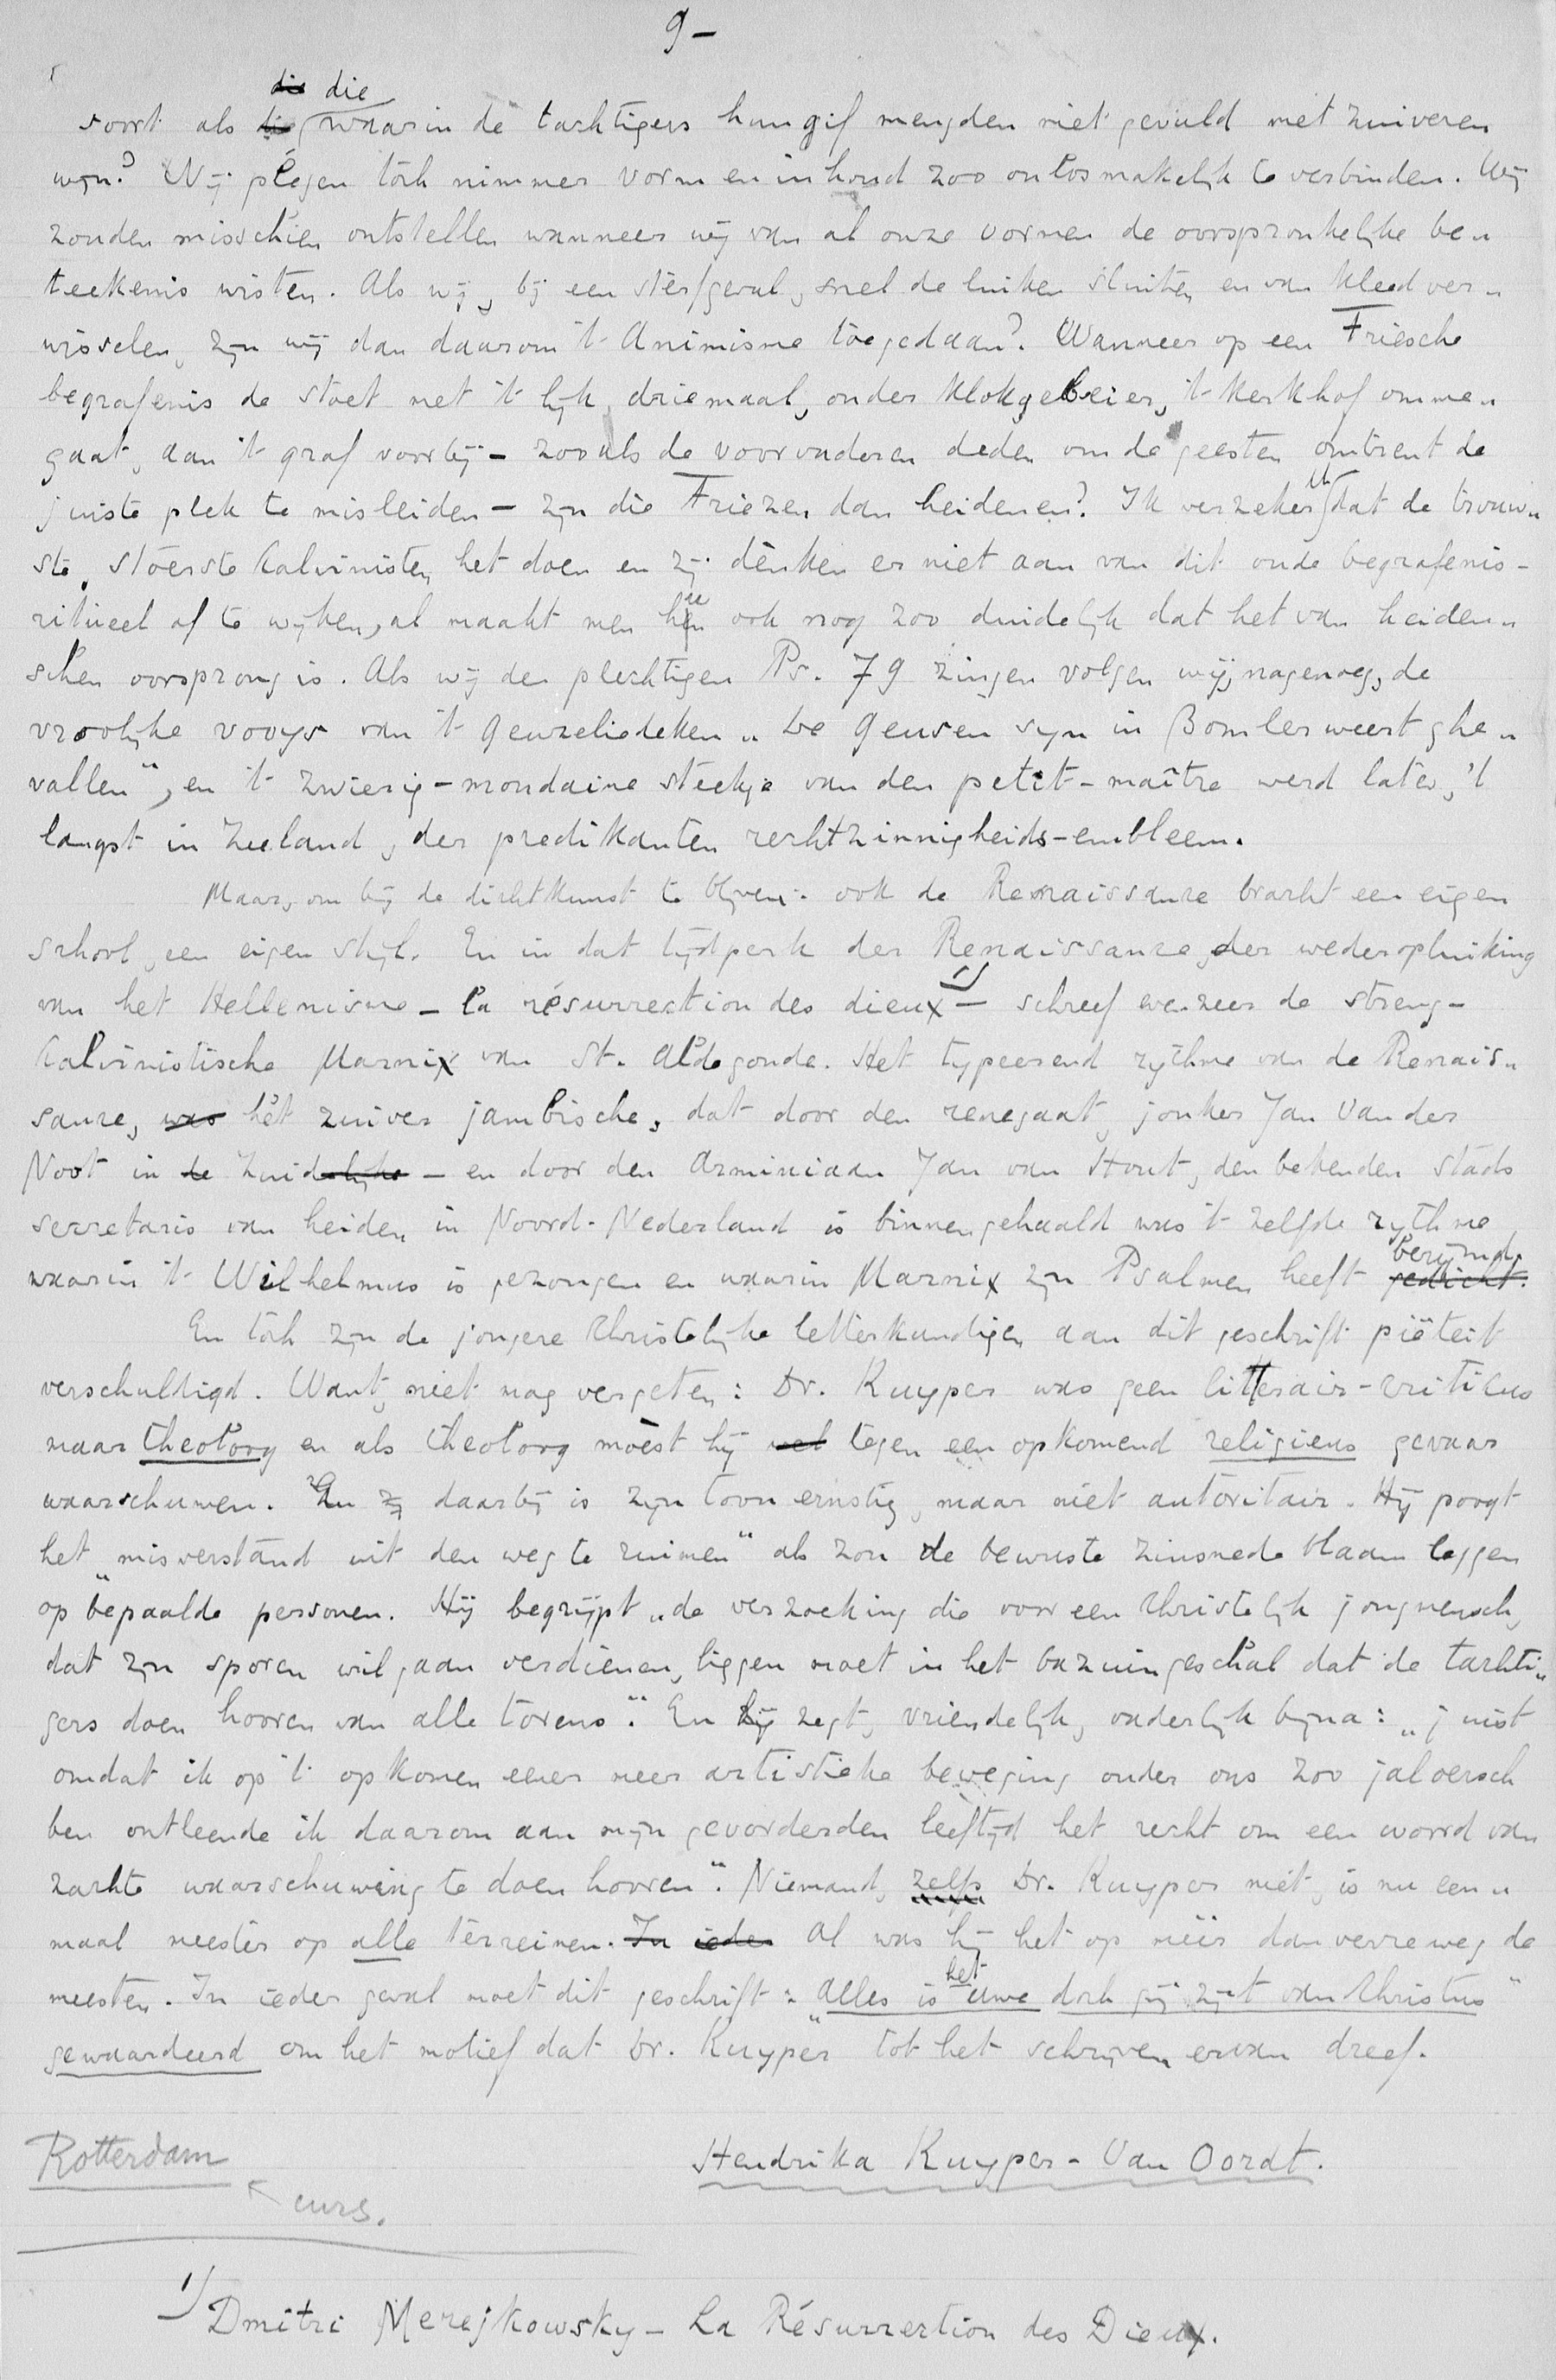 9-
soort als die waarin de tachtigers hun gif mengden niet gevuld met zuiveren
wijn? Wij plegen tòch nimmer vorm en inhoud zoo onlosmakelijk te verbinden. Wij
zouden misschien ontstellen wanneer wij van al onze vormen de oorspronkelijke be„
teekenis wisten. Als wij, bij een sterfgeval, snel de luiken sluiten en van kleed ver„
wisselen, zijn wij dan daarom 't Animisme toegedaan? Wanneer op een Friesche
begrafenis de stoet met 't lijk, driemaal, onder klokgebeier, 't kerkhof omme„
gaat, aan 't graf voorbij - zooals de voorouderen deden om de geesten omtrent de
juiste plek te misleiden - zijn die Friezen dan heidenen? Ik verzeker U dat de trouw„
ste, stoerste Calvinisten het doen en zij dènken er niet aan van dit oude begrafenis-
ritueel af te wijken, al maakt men hun ook nog zoo duidelijk dat het van heiden„
schen oorsprong is. Als wij den plechtigen Ps. 79 zingen volgen wij, nagenoeg, de
vroolijke vooys van 't Geuzeliedeken „De Geusen syn in Bomlerweert ghe„
vallen", en 't zwierig-mondaine steekje van den petit-maître werd later, 't
langst in Zeeland, der predikanten rechtzinnigheids-embleem.
Maar, om bij de dichtkunst te blijven: ook de Renaissance bracht een eigen
school, een eigen stijl. En in dat tijdperk der Renaissance, der wederopluiking
van het Hellenisme - la résurrection des dieux 1) - schreef evenzeer de streng-
Calvinistische Marnix van St. Aldegonde. Het typeerend rythme van de Renais„
sance, was het zuiver jambische, dat door den renegaat, jonker Jan Van der
Noot in de Zuidelijke - en door den Arminiaan Jan van Hout, den bekenden stads
secretaris van Leiden, in Noord-Nederland is binnengehaald was 't zelfde rythme
waarin 't Wilhelmus is gezongen en waarin Marnix zijn Psalmen heeft gedicht. berijmd.
En tòch zijn de jongere Christelijke letterkundigen aan dit geschrift piëteit
verschuldigd. Want, niet mag vergeten: Dr. Kuyper was geen litterair-criticus
maar theoloog en als theoloog mòest hij wel tegen een opkomend religieus gevaar
waarschuwen. En zij daarbij is zijn toon ernstig, maar niet autoritair. Hij poogt
het „misverstand uit den weg te ruimen" als zou de bewuste zinsnede blaam leggen
op „bepaalde personen. Hij begrijpt „de verzoeking die voor een Christelijk jongmensch,
dat zijn sporen wil gaan verdienen, liggen moet in het bazuingeschal dat de tachti„
gers doen hooren van alle torens". En hij zegt, vriendelijk, vaderlijk bijna: „juist
omdat ik op 't opkomen eener meer artistieke beweging onder ons zoo jaloersch
ben ontleende ik daarom aan mijn gevorderden leeftijd het recht om een woord van
zachte waarschuwing te doen hooren". Niemand, zelfs Dr. Kuyper niet, is nu een„
maal meester op alle terreinen. In ieder Al was hij het op méér dan verreweg de
meesten. In ieder geval moet dit geschrift: „Alles is het uwe doch gij zijt van Christus"
gewaardeerd om het motief dat Dr. Kuyper tot het schrijven ervan dreef.
Rotterdam
Hendrika Kuyper-Van Oordt.
curs.
1) Dmitri Merejkowsky - La Résurrection des Dieux.